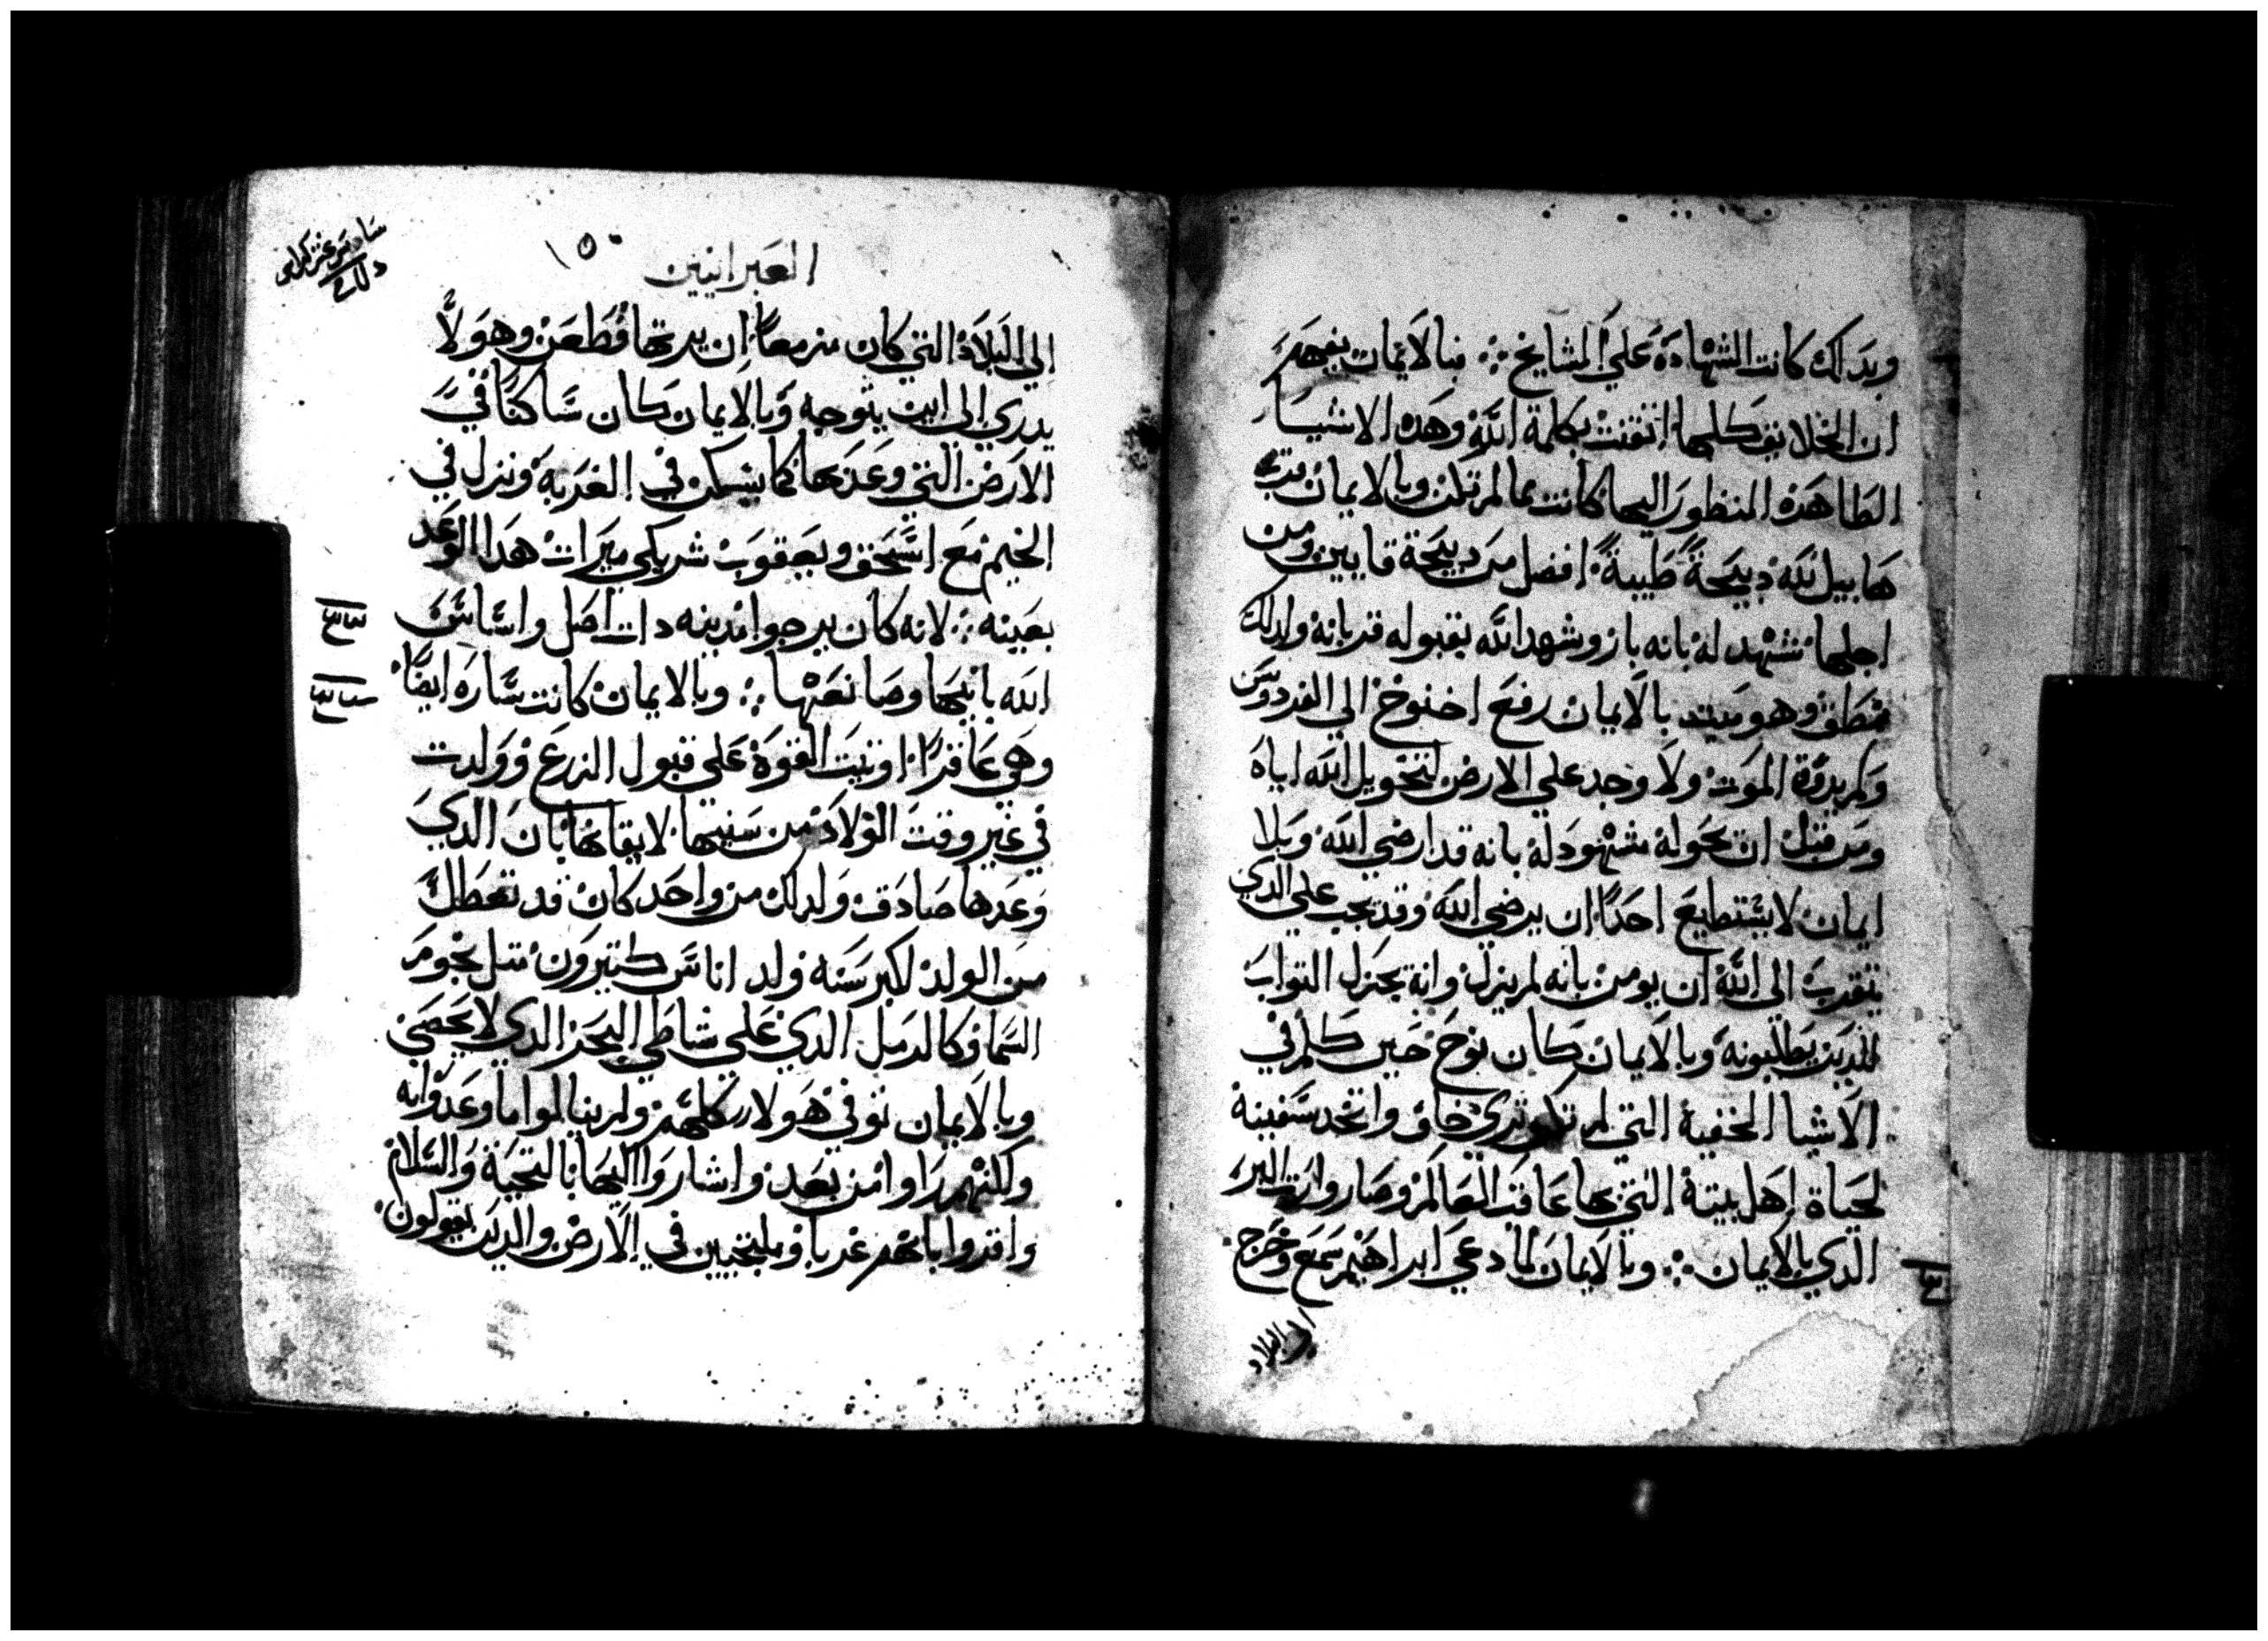 وبدالك كانت الشهادة علي المشايخ ∴ فبالايمان يفهم
ان الخلايق كلها اتقنت بكلمة الله وهده الاشيا
الظاهده المنظور اليها كانت مما لم تكن وبالايمان قرب
هابيل لله دبيحة طيبة افضل من دبيحة قايين ومن
اجلها شهد له بانه بار وشهد الله بقبوله قربانه ولدلك
نطق وهو ميت بالايمان رفع اخنوخ الي الفردوس
ولم يدوق الموت ولا وجد علي الارض لتحويل الله اياه
ومن قبل ان يحوله شهود له بانه قد ارضي الله وبلا
ايمان لا يستطيع احدا ان يرضي الله وقد يجب علي الدي
يتقرب الي الله ان يومن بانه لم يزل وانه يجزل التواب
للدين يطلبونه وبالايمان كان نوح حين كلم في
الاشيا الخفية التي لم تكن تري خاف واتخد سفينة
لحياة اهل بيته التي بها عاقب العالم وصار وارت البر
الدي بالايمان ∴ وبالايمان لما دعي ابراهيم سمع وخرج
الي البلاد
العبرانيين
١٥٠
الي البلاد التي كان مزمعا ان يرتها فظعن وهو لا
يدري الي اين يتوجه وبالايمان كان ساكنا في
الارض التي وعد بها كما يسكن في الغربة ونزل في
الخيم مع اسحق ويعقوب شريكي ميرات هدا الوعد
بعينه ∴ لانه كان يرجوا مدينه دات اصل واساس
الله بانيها وصانعها ∴ وبالايمان كانت ساره ايضا
وهي عاقرا اوتيت القوة علي قبول الزرع وولدت
في غير وقت الولاد من سنيها لايقانها بان الدي
وعدها صادق ولدلك من واحد كان قد تعطل
من الولد لكبر سنه ولد اناس كتيرون متل نجوم
السما وكالرمل الدي علي شاطي البحر الدي لا يحصي
وبالايمان توفي هولاء كلهم ولم ينالوا ما وعدوا به
ولكنهم راوا من بعد واشاروا اليها بالتحية والسلام
واقروا بانهم غربا وملتجيين في الارض والدين يقولون